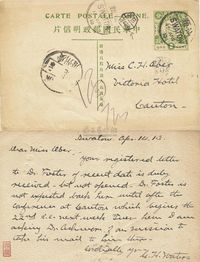 CARTE POSTALE – CHINE.
中華民國郵政明信片
Miss C. H.
Victoria Hotel
Canton.
Swatow Apr. 14. 13.
Dear Miss
Your registered letter
to Dr. Foster of recent date is duly
received – but not opened. Dr. Foster is
not expected back here until after the
conference at Canton which begins the
22nd i.e. next week. Ever been I am
asking Dr. Ashmore of our mission to
his mail to him
Cordially yrs –